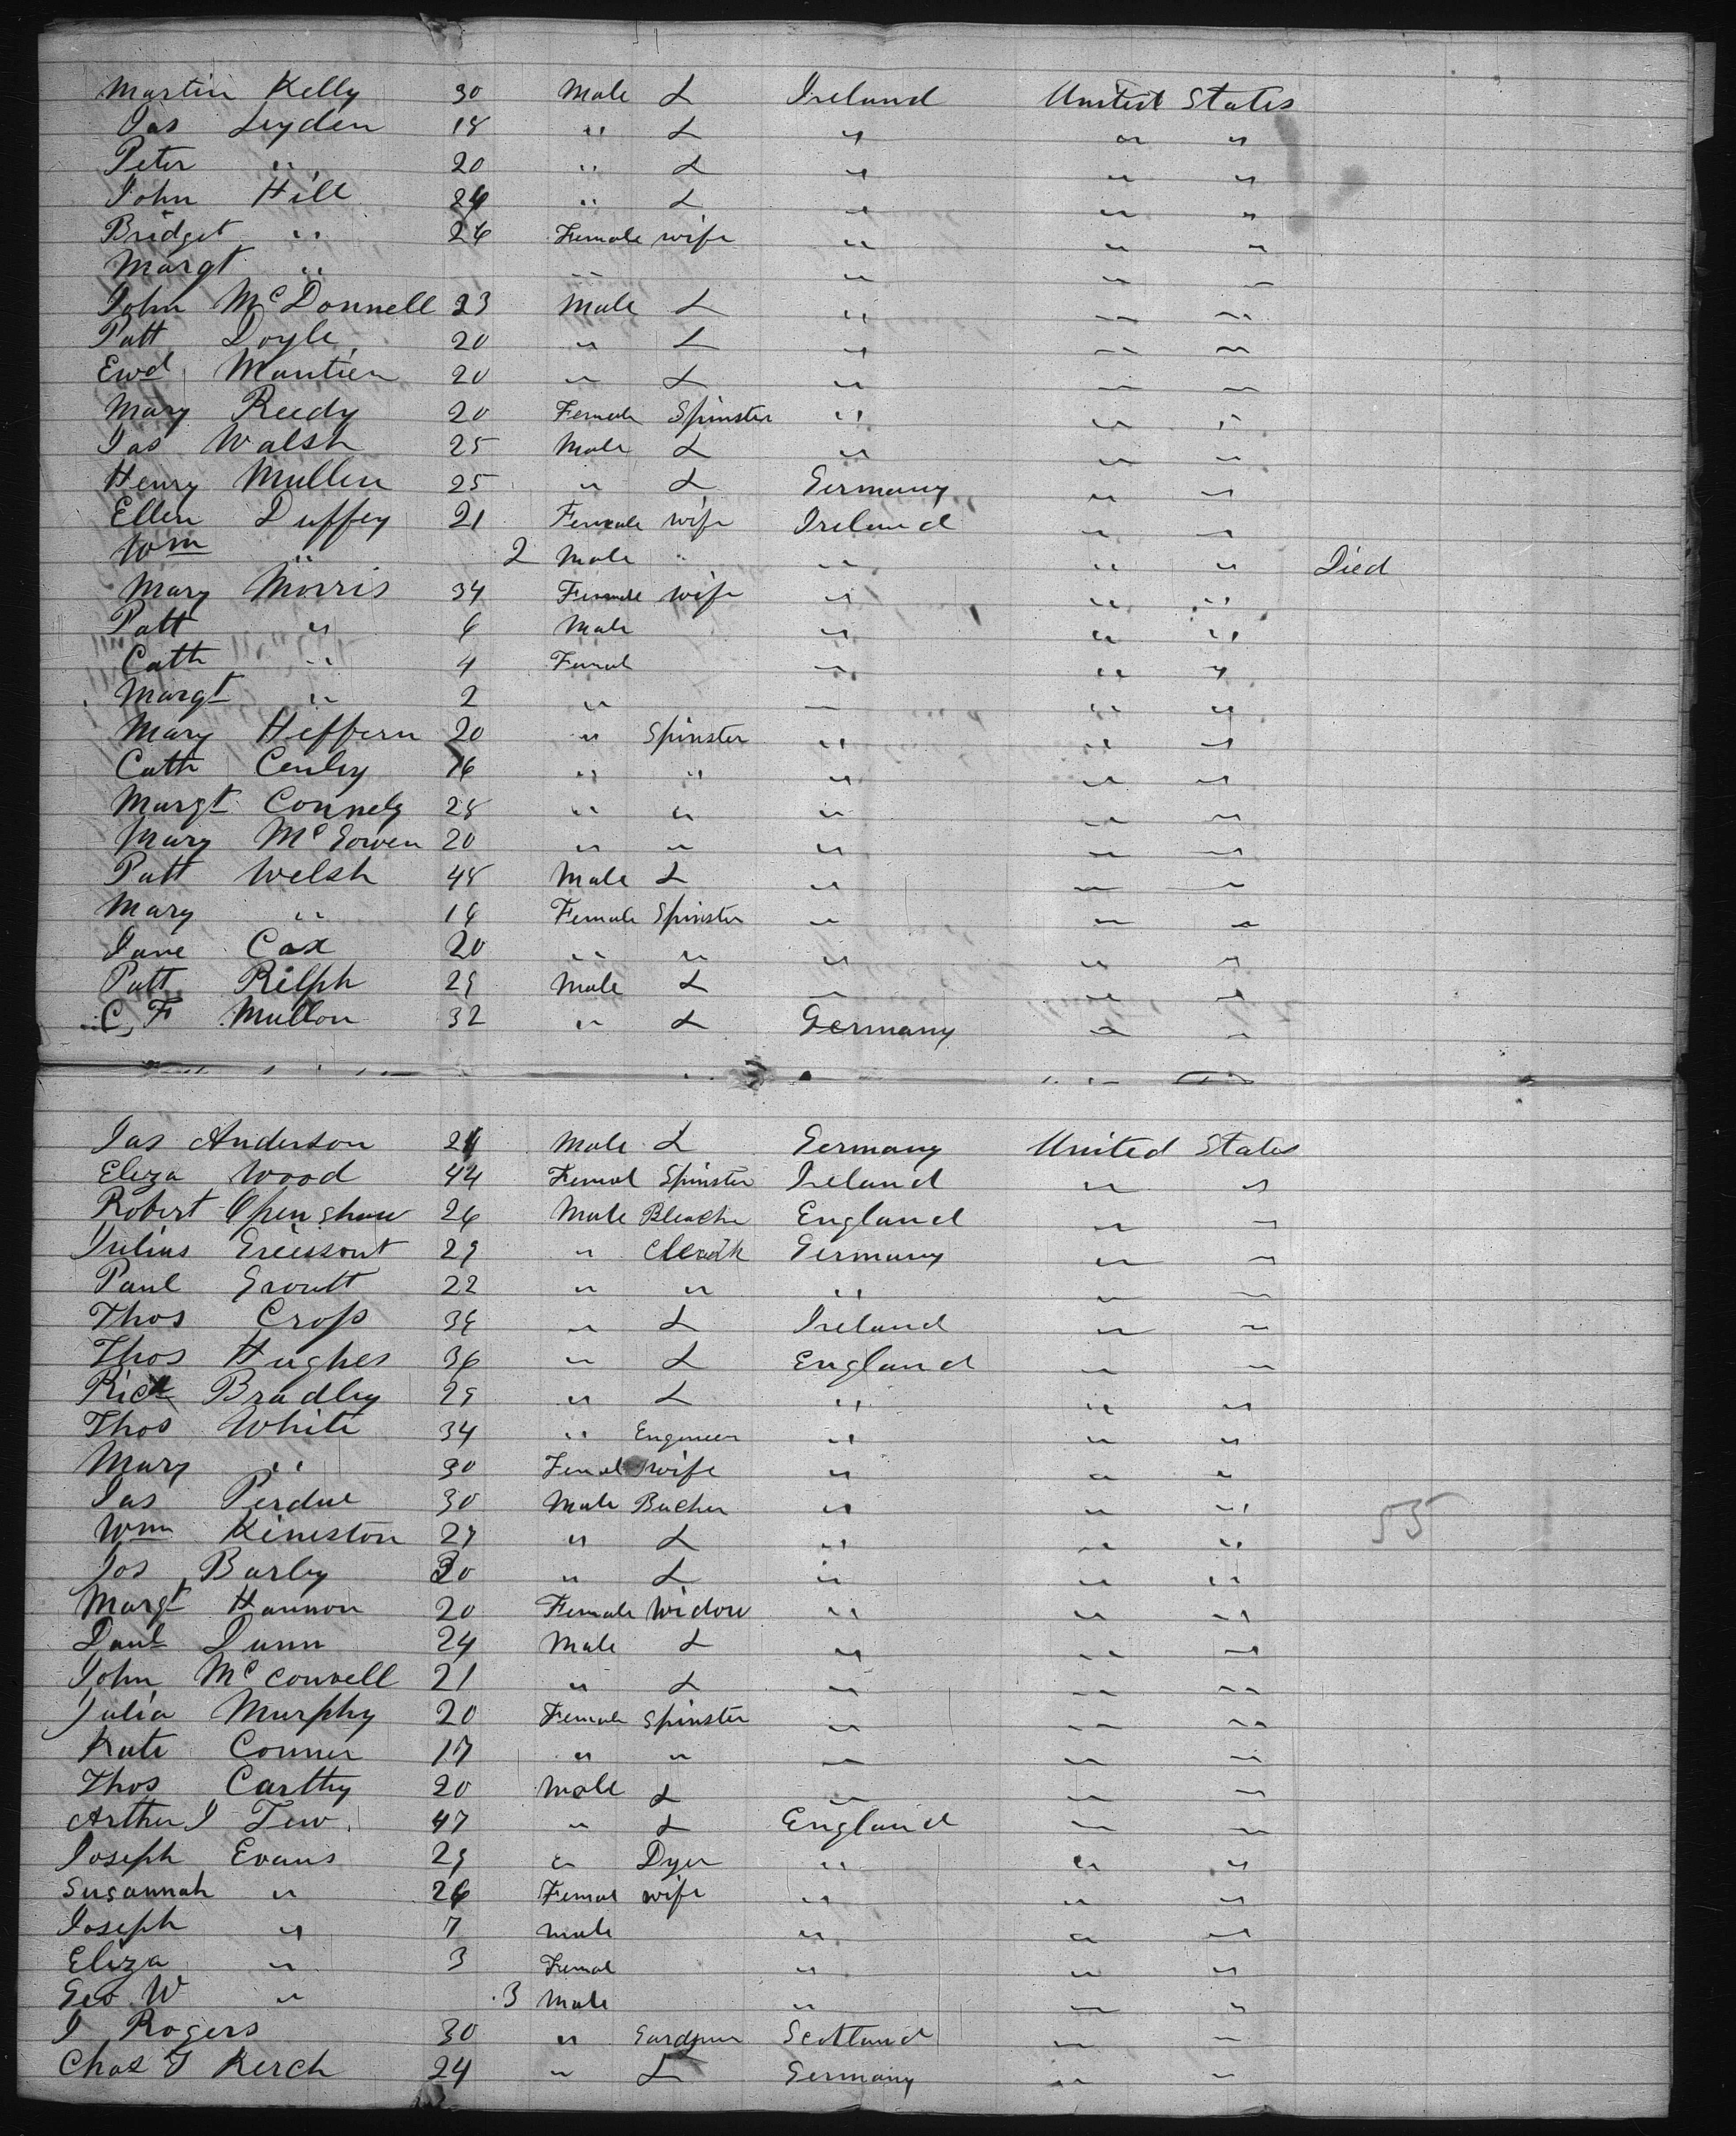 Martin Kelly 30 Male L Ireland United States
Jas Leyden 18 " L " " "
Peter " 20 " L " " "
John Hill 24 " L " " "
Bridget " 26 Female wife " " "
Margt " " " " "
John McDonnell 23 Male L " " "
Patt Doyle 20 " L " " "
Ewd 20 " L " " "
Mary Reedy 20 Female Spinster " " "
Jas Walsh 25 Male L " " "
Henry Mullen 25 " L Germany " "
Ellen Duffey 21 Female wife Ireland " "
Wm " 2 Male " " " " Died
Mary Morris 34 Female wife " " "
Patt " 6 Male " " "
Cath " 4 Femal " " "
Margt " 2 " " " "
Mary Heffern 20 " Spinster " " "
Cath Conley 16 " " " " "
Margt Connely 28 " " " " "
Mary McGowen 20 " " " " "
Patt Welsh 48 Male L " " "
Mary " 16 Female Spinster " " "
Jane Cox 20 " " " " "
Patt Rilph 29 Male L " " "
C, F Mullon 32 " L Germany " "
Jas Anderson 24 Male L Germany United States
Eliza Wood 44 Femal Spinster Ireland " "
Robert Openshaw 26 Male Bleacher England " "
Julius 29 " Clerk Germany " "
Paul Groutt 22 " " " " "
Thos Cross " L Ireland " "
Thos Hughes 36 " L England " "
Rich Bradley 29 " L " " "
Thos White 34 " Engineer " " "
Mary " 30 Femal wife " " "
Jas Perdue 30 Male Bucher " " "
Wm Kineston 27 " L " " "
Jos Barley 30 " L " " "
Margt Hannon 20 Female Widow " " "
Danl Dunn 24 Male L " " "
John McConnell 21 " L " " "
Julia Murphy 20 Female Spinster " " "
Kate Conner 17 " " " " "
Thos Carthy 20 Male L " " "
Arthur J Tew 47 " L England " "
Joseph Evans 29 " Dyer " " "
Susannah " 26 Femal wife " " "
Joseph " 7 male " " "
Eliza " 3 Femal " " "
Geo W " .3 Male " " "
J Rogers 30 " Gardener Scotland " "
Chas J Kerch 24 " L Germany " "
55